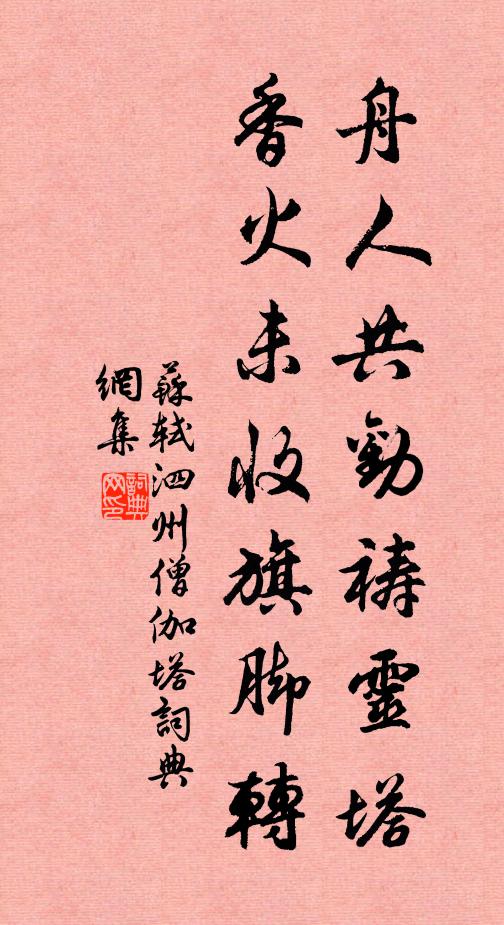 舟人共勸禱靈塔
香火未收旗脚轉
蘇軾泗州僧伽塔詞典
網集
詞典
网印